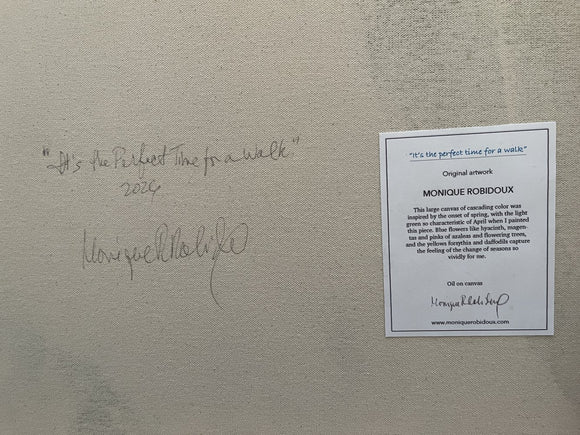 "It's the Perfect Time for a Walk"
2024
Monique Robidoux
"It's the perfect time for a walk"
Original artwork
MONIQUE ROBIDOUX
This large canvas of cascading color was
inspired by the onset of spring, with the light
green so characteristic of April when I painted
this piece. Blue flowers like hyacinth, magen-
tas and pinks of azaleas and flowering trees,
and the yellows forsythia and daffodils capture
the feeling of the change of seasons so
vividly for me.
Oil on canvas
Monique Robidoux
www.moniquerobidoux.com